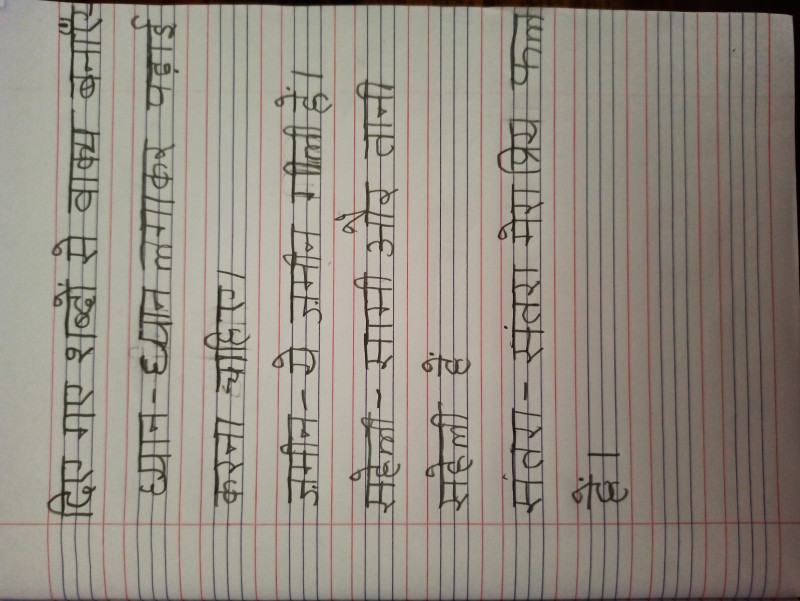 दिए गए शब्दों से वाक्य बनाएँ
ध्यान - ध्यान लगाकर पढ़ाई
करना चाहिए।
ज़मीन - ये ज़मीन गीली हैं।
सहेली - सानी और वानी
सहेली हैं
संतरा - संतरा मेरा प्रिय फल
हैं।